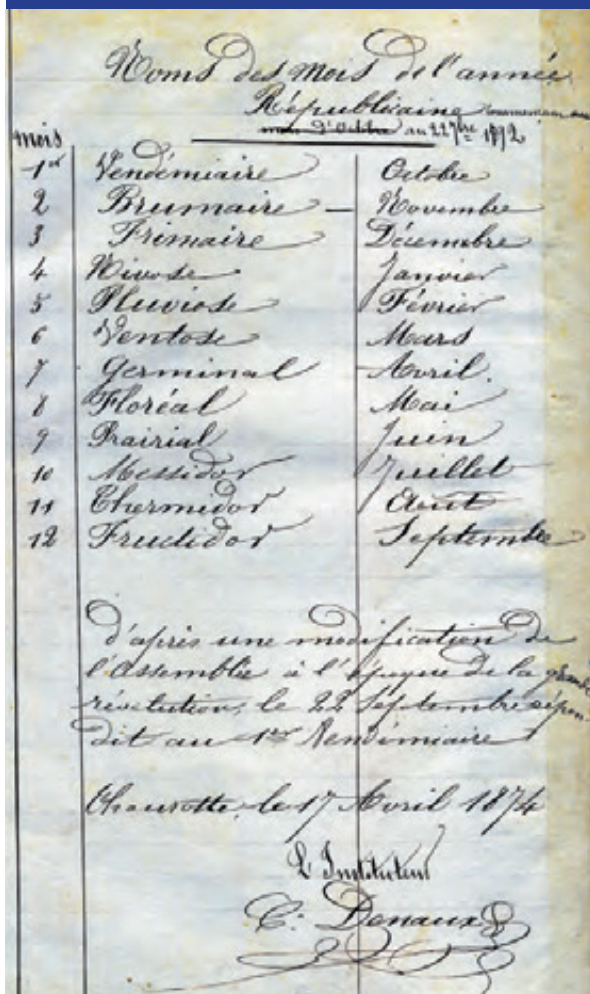 Noms des mois de l'année
Républicaine commençant au
mois d'Octobre au 22 7bre 1792
mois
1er Vendémiaire Octobre
2 Brumaire – Novembre
3 Frimaire Décembre
4 Nivose Janvier
5 Pluviose Février
6 Ventose Mars
7 Germinal Avril.
8 Floréal Mai
9 Prairial Juin
10 Messidor Juillet
11 Thermidor Août
12 Fructidor Septembre
d'après une modification de
l'assemblée à l'époque de la grande
révolution, le 22 Septembre répon
dit au 1er Vendémiaire
le 17 Avril 1874
L'Instituteur
C. Denaux